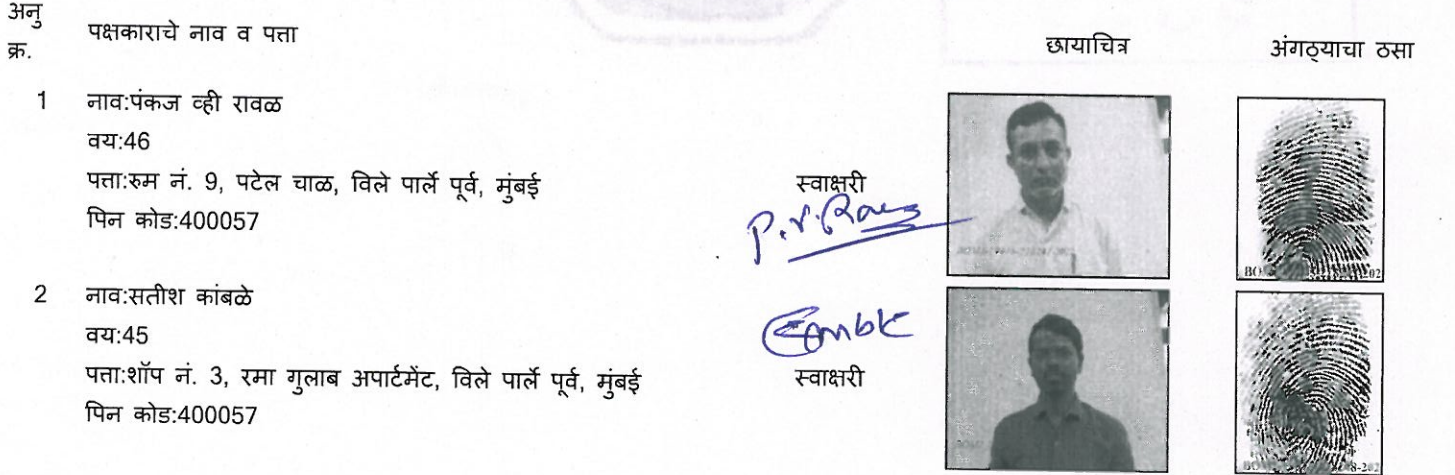 अनु क्र. पक्षकाराचे नाव व पत्ता छायाचित्र अंगठ्याचा ठसा
1 नाव:पंकज व्ही रावळ
वय:46
पत्ता:रुम नं. 9, पटेल चाळ, विले पार्ले पूर्व, मुंबई
पिन कोड:400057
स्वाक्षरी
2 नाव:सतीश कांबळे
वय:45
पत्ता:शॉप नं. 3, रमा गुलाब अपार्टमेंट, विले पार्ले पूर्व, मुंबई
पिन कोड:400057
स्वाक्षरी